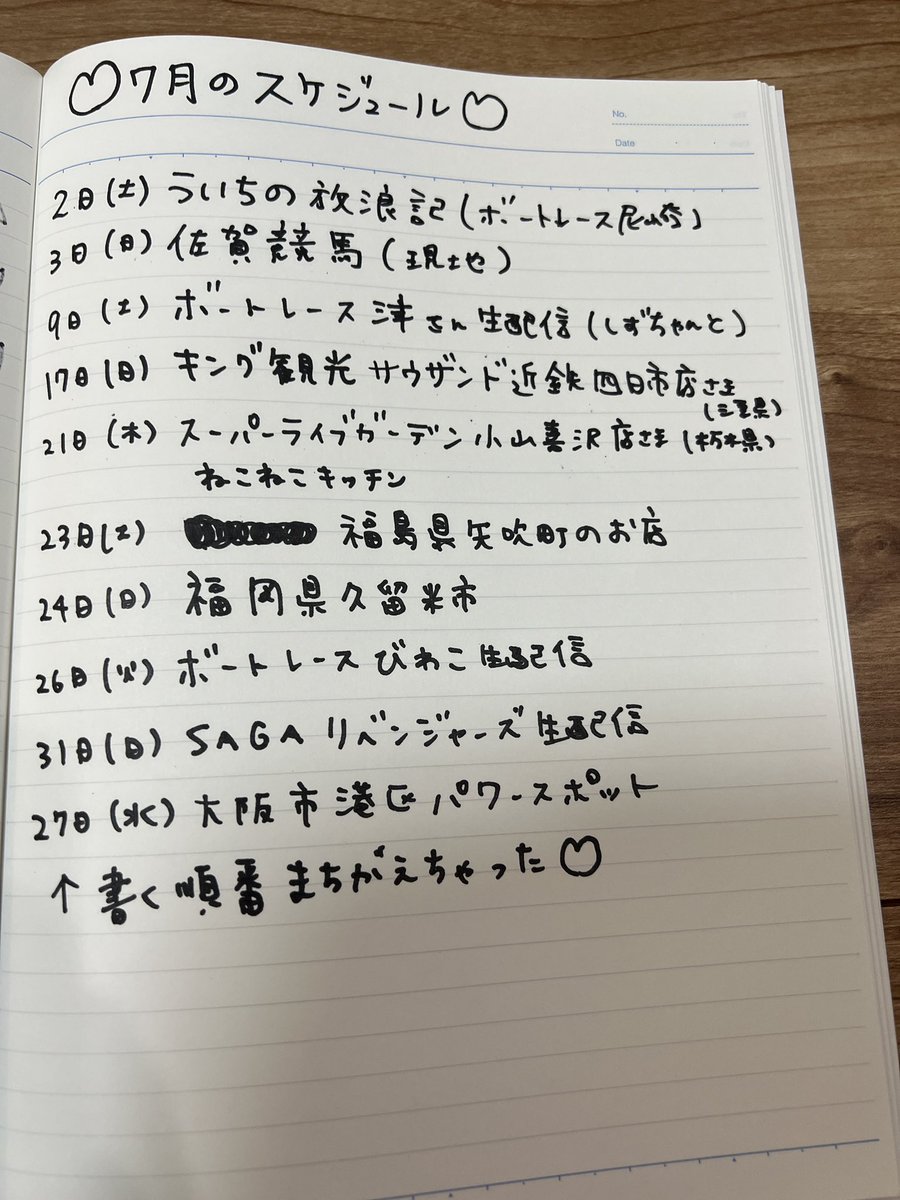 ♡7月のスケジュール♡
No.
Date
2日(土) ういちの放浪記(ボートレース尼崎)
3日(日) 佐賀競馬(現地)
9日(土) ボートレース津さん生配信(しずちゃんと)
17日(日) キング観光サウザンド近鉄四日市店さま
(三重県)
21日(木) スーパーライブガーデン小山喜沢店さま(栃木県)
ねこねこキッチン
23日(土) 福島県矢吹町のお店
24日(日) 福岡県久留米市
26日(火) ボートレースびわこ生配信
31日(日) SAGAリベンジャーズ生配信
27日(水) 大阪市港区パワースポット
↑書く順番まちがえちゃった♡